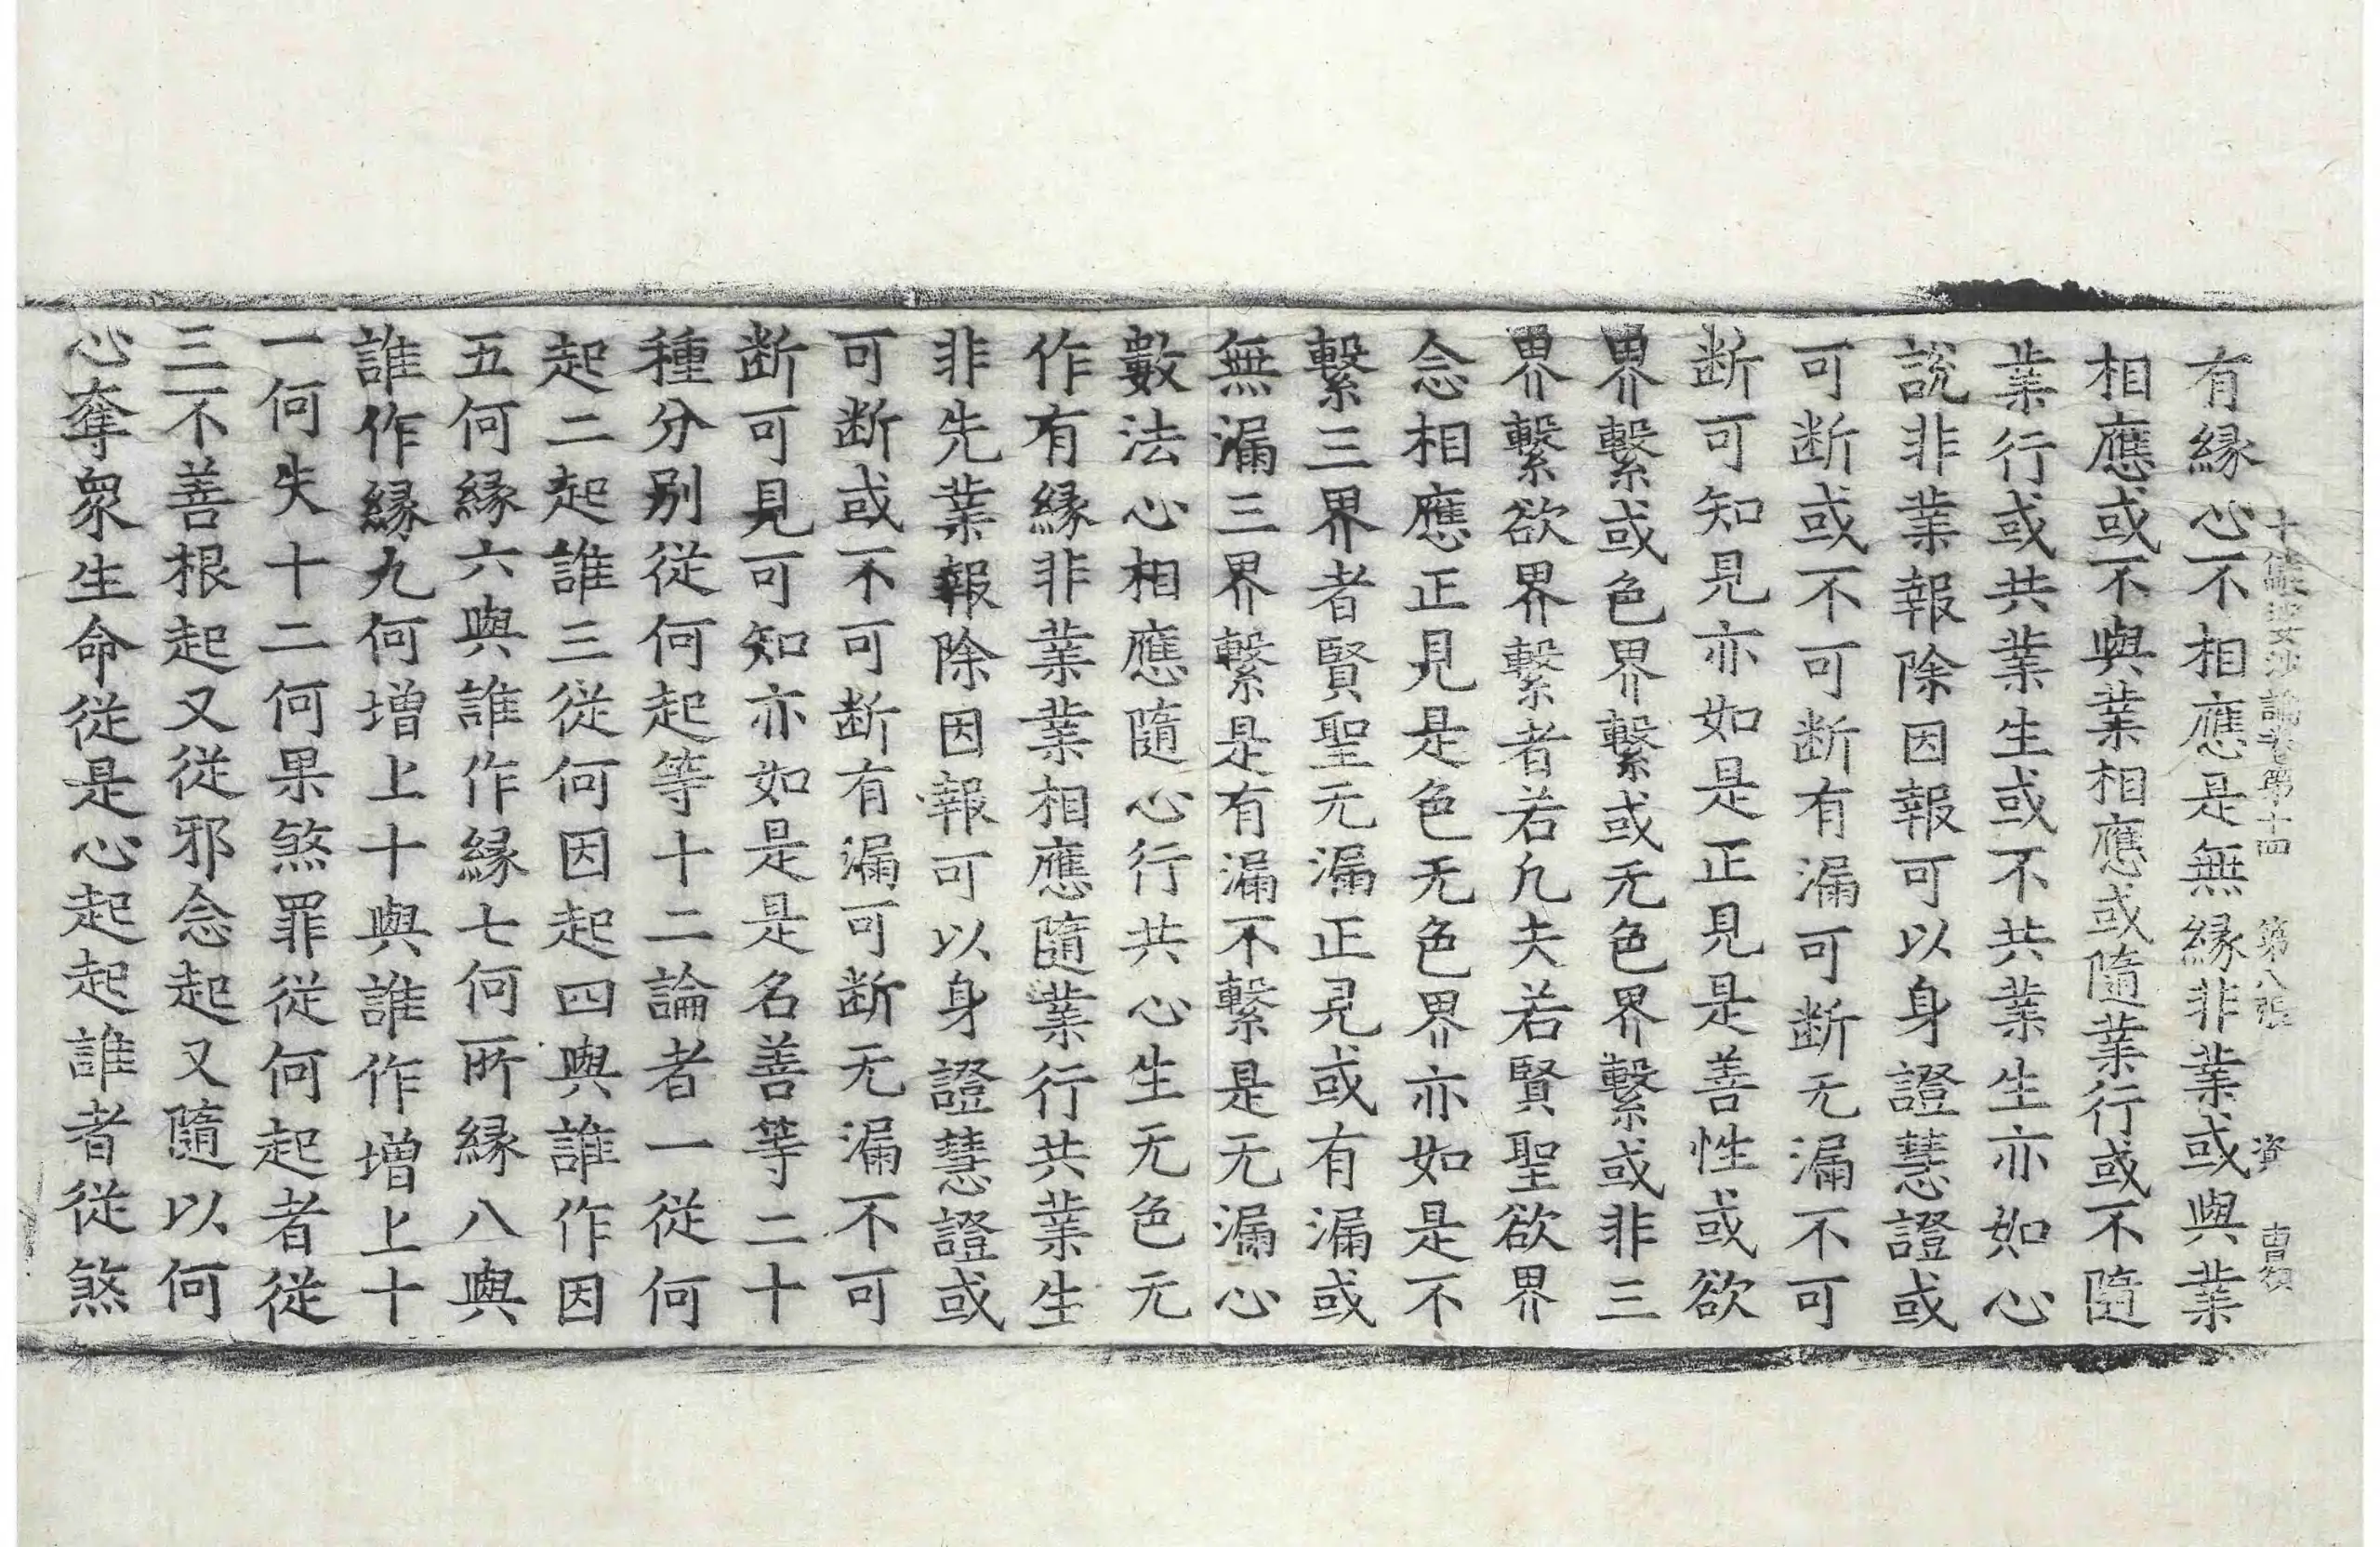 十住毗婆沙論卷第十四　第八張　資
有縁心不相應是無縁非業或與業
相應或不與業相應或隨業行或不隨
業行或共業生或不共業生亦如心
說非業報除因報可以身證慧證或
可断或不可断有漏可断无漏不可
断可知見亦如是正見是善性或欲
界繫或色界繫或无色界繫或非三
界繫欲界繫者若凡夫若賢聖欲界
念相應正見是色无色界亦如是不
繫三界者賢聖无漏正見或有漏或
無漏三界繫是有漏不繫是无漏心
數法心相應隨心行共心生无色无
作有縁非業業相應隨業行共業生
非先業報除因報可以身證慧證或
可断或不可断有漏可断无漏不可
断可見可知亦如是是名善等二十
種分别從何起等十二論者一從何
起二起誰三從何因起四與誰作因
五何縁六與誰作縁七何所縁八與
誰作縁九何增上十與誰作增上十
一何失十二何果煞罪從何起者從
三不善根起又從邪念起又隨以何
心奪衆生命從是心起起誰者從煞